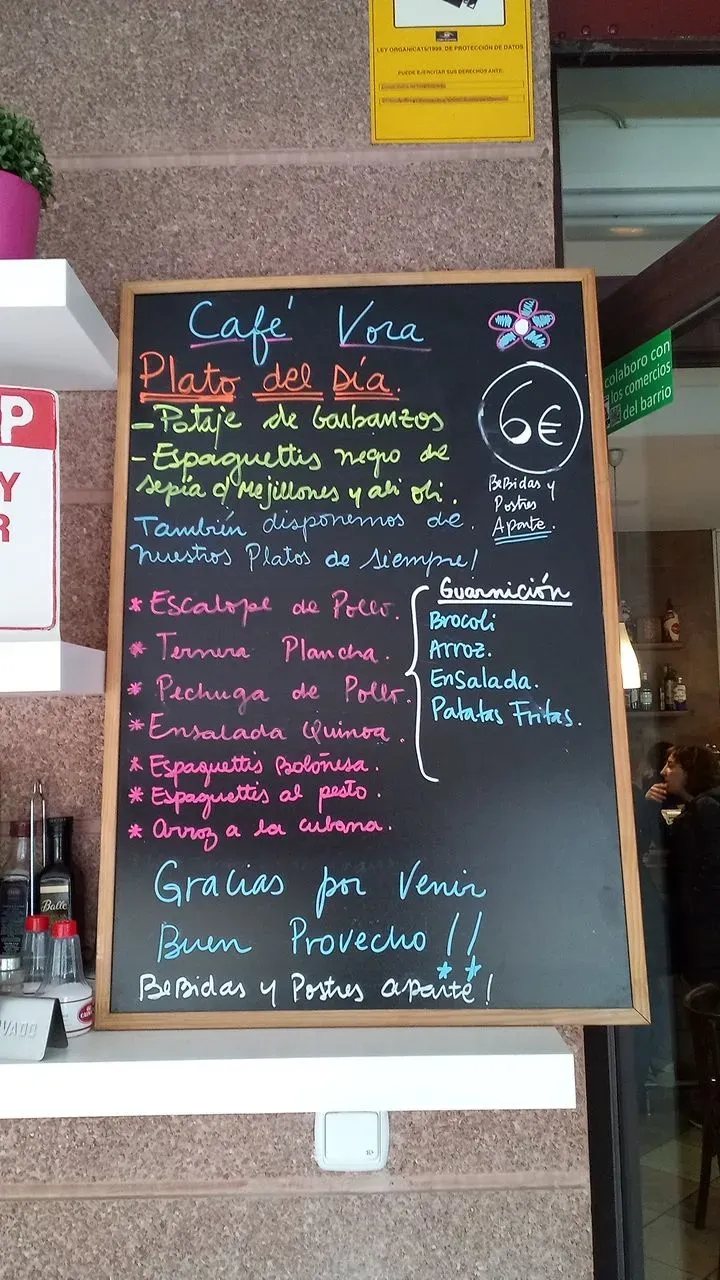 LEY ORGANICA15/1999, DE PROTECCIÓN DE DATOS
PUEDE EJERCITAR SUS DERECHOS ANTE:
colaboro con
los comercios
del barrio
P
Y
R
Café Vora
Plato del Día.
6€
BeBidas y
Postres
Aparte.
- Potaje de Garbanzos
- Espaguettis negro de
sepia c/ Mejillones y ali oli.
También disponemos de
nuestros Platos de siempre!
* Escalope de Pollo.
* Ternera Plancha.
* Pechuga de Pollo.
* Ensalada Quinoa.
* Espaguettis Boloñesa.
* Espaguettis al pesto.
* Arroz a la cubana.
Guarnición
Brocoli
Arroz.
Ensalada.
Patatas Fritas.
Gracias por Venir
Buen Provecho !!
BeBidas y Postres aparte!